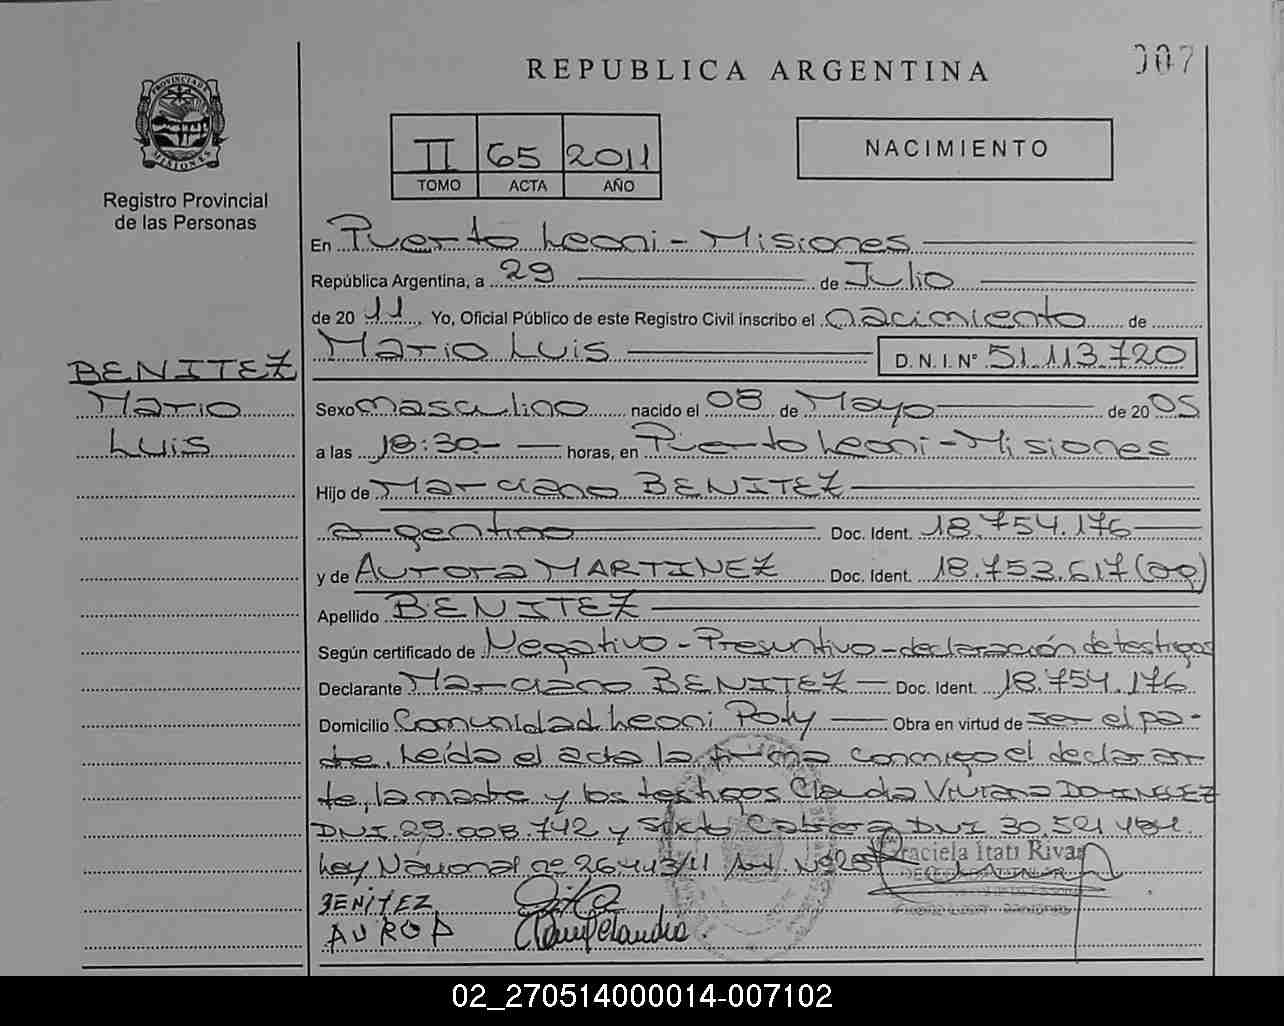 REPUBLICA ARGENTINA
007
PROVINCIA DE
MISIONES
Registro Provincial
de las Personas
II 65 2011
TOMO ACTA AÑO
NACIMIENTO
En Puerto Leoni - Misiones
República Argentina, a 29 de Julio
de 20 11 Yo, Oficial Público de este Registro Civil inscribo el nacimiento de
Mario Luis D.N.I.Nº 51.113.720
BENITEZ
Mario
Luis
Sexo masculino nacido el 08 de Mayo de 20 05
a las 18:30 horas, en Puerto Leoni - Misiones
Hijo de Marciano BENITEZ
argentino Doc. Ident. 18.754.176
y de Aurora MARTINEZ Doc. Ident. 18.753.617 (ag)
Apellido BENITEZ
Según certificado de Negativo - Presuntivo - declaración de testigos
Declarante Marciano BENITEZ Doc. Ident. 18.754.176
Domicilio Comunidad Leoni Poty Obra en virtud de ser el pa-
dre. Leída el acta la firma conmigo el declaran
te, la madre y los testigos Claudia Viviana DOMINGUEZ
DNI. 29.008.742 y Sixto Cabrera DNI 30.521.484.
Ley Nacional nº 26.413/11 Art Nº 28
Graciela Itatí Rivas
BENITEZ
AUROA
02_270514000014-007102